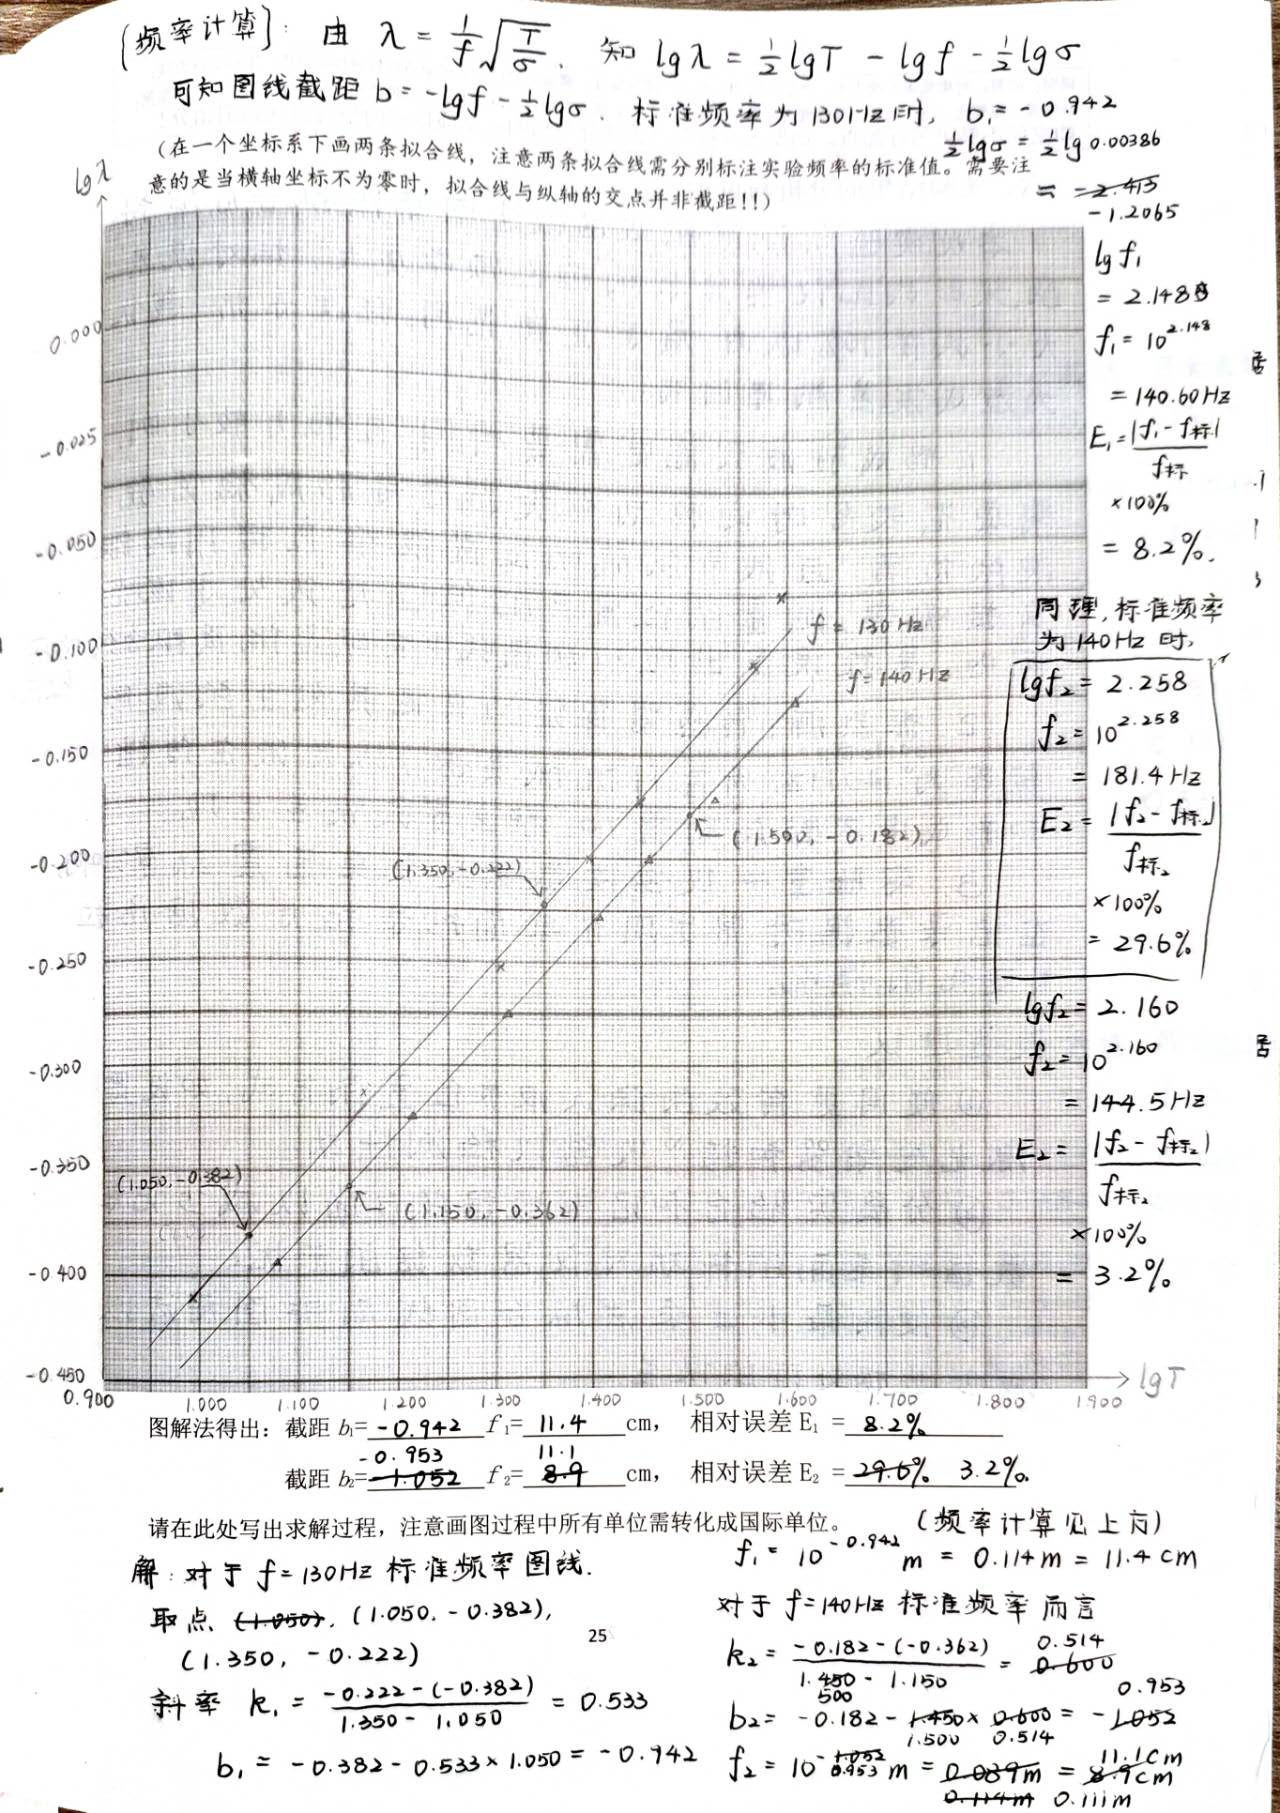 [频率计算]: 由 λ = 1/f √(T/σ). 知 lgλ = 1/2 lgT - lgf - 1/2 lgσ
可知图线截距 b = -lgf - 1/2 lgσ. 标准频率为130Hz时, b₁ = -0.942
1/2 lgσ = 1/2 lg 0.00386
(在一个坐标系下画两条拟合线，注意两条拟合线需分别标注实验频率的标准值。需要注
意的是当横轴坐标不为零时，拟合线与纵轴的交点并非截距!!)
= -2.413
-1.2065
lg f₁
= 2.148
f₁ = 10^2.148
= 140.60Hz
E₁ = |f₁ - f标|/f标
×100%
= 8.2%.
同理, 标准频率
为140Hz时,
lgf₂ = 2.258
f₂ = 10^2.258
= 181.4Hz
E₂ = |f₂ - f标₂|/f标₂
×100%
= 29.6%
lgf₂ = 2.160
f₂ = 10^2.160
= 144.5Hz
E₂ = |f₂ - f标₂|/f标₂
×100%
= 3.2%
lgλ
0.000
-0.025
-0.050
-0.100
-0.150
-0.200
-0.250
-0.300
-0.350
-0.400
-0.450
f = 130Hz
f = 140Hz
(1.500, -0.182)
(1.350, -0.222)
(1.050, -0.382)
(1.150, -0.362)
0.900 1.000 1.100 1.200 1.300 1.400 1.500 1.600 1.700 1.800 1.900 lgT
图解法得出：截距 b₁= -0.942 f₁= 11.4 cm， 相对误差 E₁ = 8.2%
-0.953 11.1
截距 b₂= -1.052 f₂= 8.9 cm， 相对误差 E₂ = 29.6% 3.2%.
请在此处写出求解过程，注意画图过程中所有单位需转化成国际单位。 (频率计算见上方)
解: 对于 f=130Hz 标准频率图线.
取点 (1.050), (1.050, -0.382),
(1.350, -0.222)
斜率 k₁ = (-0.222-(-0.382))/(1.350-1.050) = 0.533
b₁ = -0.382 - 0.533×1.050 = -0.942
25
f₁ = 10^-0.942 m = 0.114m = 11.4cm
对于 f=140Hz 标准频率而言
k₂ = (-0.182-(-0.362))/(1.450-1.150) = 0.600
500 0.514
b₂ = -0.182 - 1.450×0.600 = -1.052
1.500 0.514 0.953
f₂ = 10^-1.052 m = 0.089m = 8.9cm
0.953 0.114m 0.111m 11.1cm